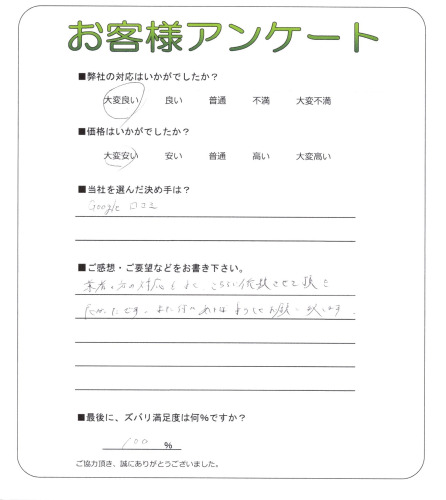 お客様アンケート
■弊社の対応はいかがでしたか？
大変良い 良い 普通 不満 大変不満
■価格はいかがでしたか？
大変安い 安い 普通 高い 大変高い
■当社を選んだ決め手は？
Google 口コミ
■ご感想・ご要望などをお書き下さい。
業者の方の対応もよく、こちらに依頼させて頂き
よかったです。また何かあればよろしくお願い致します。
■最後に、ズバリ満足度は何％ですか？
100 %
ご協力頂き、誠にありがとうございました。